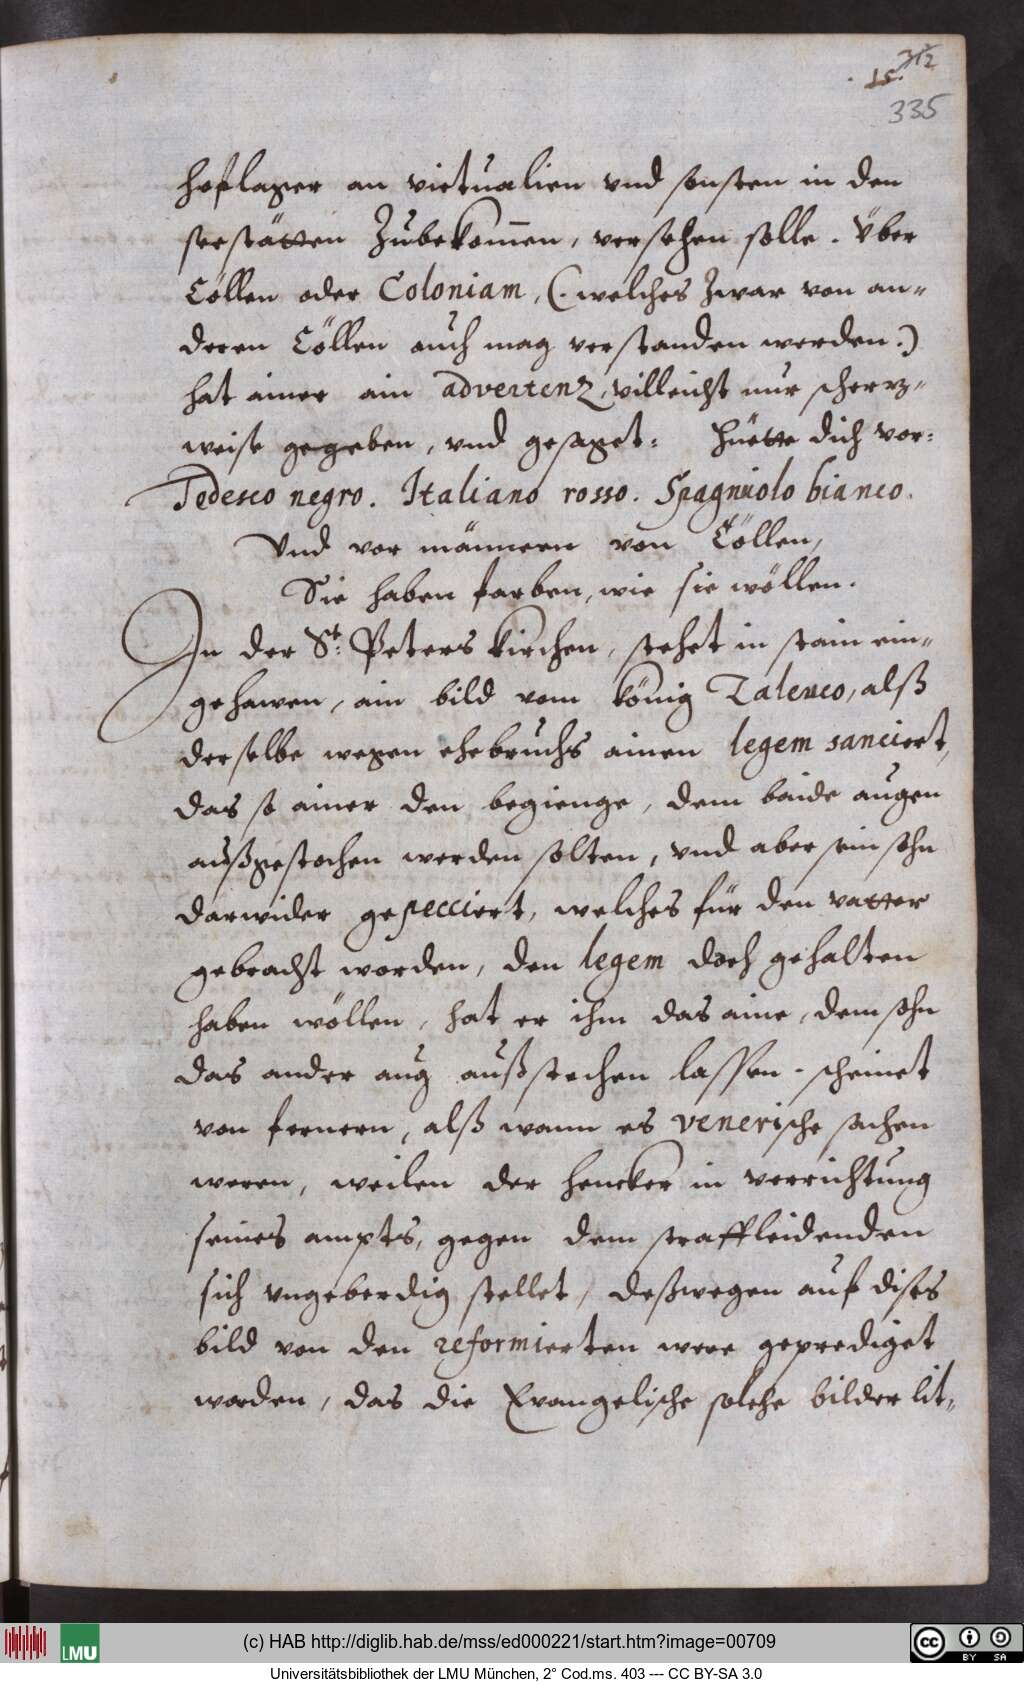 312
15.
335
hoflager an victualien vnd sonsten in den
seestätten Zubekom̄en, versehen solle. Über
Cöllen oder Coloniam, (. welches Zwar von an-
deren Cöllen auch mag verstanden werden.)
hat ainer ain advertenz, villeicht nur scherz-
weise gegeben, vnd gesaget: Hüette dich vor:
Tedesco negro. Italiano rosso. Spagnuolo bianco.
Vnd vor männern von Cöllen,
Sie haben farben, wie sie wöllen.
In der St: Peters kirchen, stehet in stain ein-
gehawen, ain bild vom könig Zaleuco, alß
derselbe wegen ehebruchs ainen legem sanciert,
das so ainer den begienge, dem baide augen
außgestochen werden solten, vnd aber sein sohn
darwider gepecciert, welches für den vatter
gebracht worden, den legem doch gehalten
haben wöllen, hat er ihm das aine, dem sohn
das ander aug außstechen lassen. scheinet
von fernern, alß wann es venerische sachen
weren, weilen der hencker in verrichtung
seines ampts, gegen dem straffleidenden
sich vngeberdig stellet, deßwegen auf dises
bild von den reformierten were geprediget
worden, das die Evangelische solche bilder lit-
(c) HAB http://diglib.hab.de/mss/ed000221/start.htm?image=00709
LMU
cc BY SA
Universitätsbibliothek der LMU München, 2° Cod.ms. 403 --- CC BY-SA 3.0